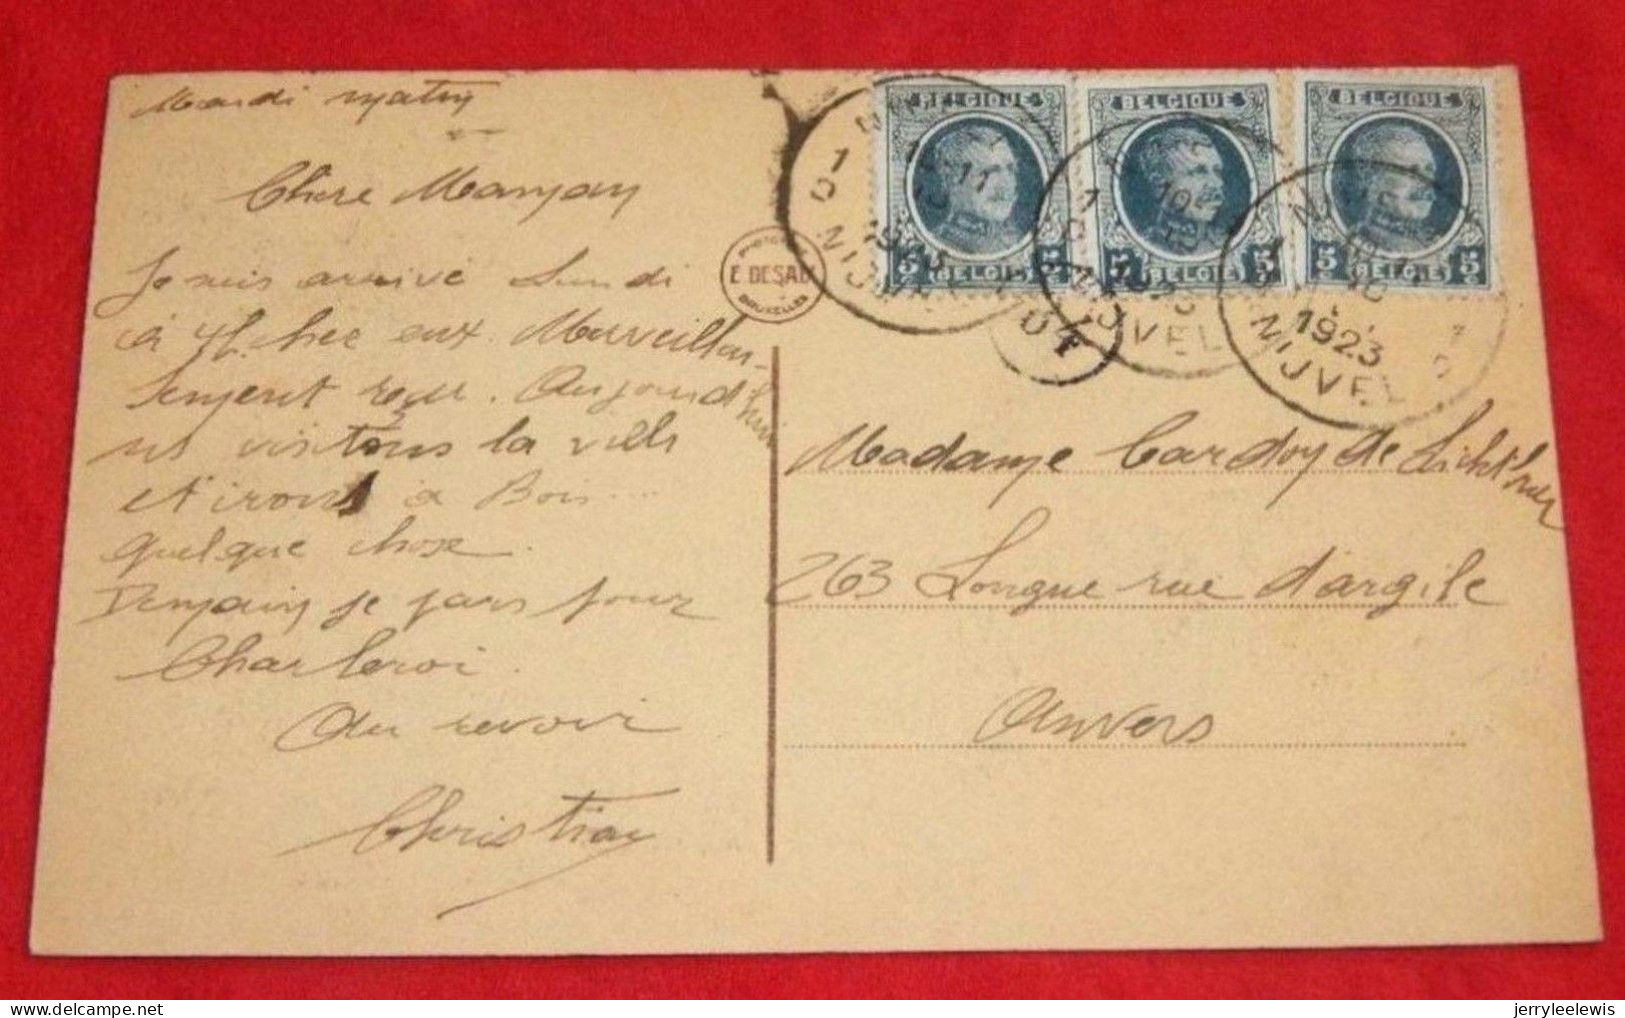 Mardi matin
Chère Maman
Je suis arrivé Lundi
à 4h. chez eux. Merveilleu-
sement reçu. Aujourd'hui
ns visitons la ville
et irons à Bois ....
quelque chose.
Demain je pars pour
Charleroi.
Au revoir
Christian
E. DESAIX
BRUXELLES
BELGIQUE
5 BELGIË 5
BELGIQUE
5 BELGIË 5
BELGIQUE
5 BELGIË 5
NIJVEL
1923
NIJVEL
1923
NIJVEL
Madame Cardon de Lichtbuer
263 Longue rue d'argile
Anvers
jerryleelewis
delcampe.net